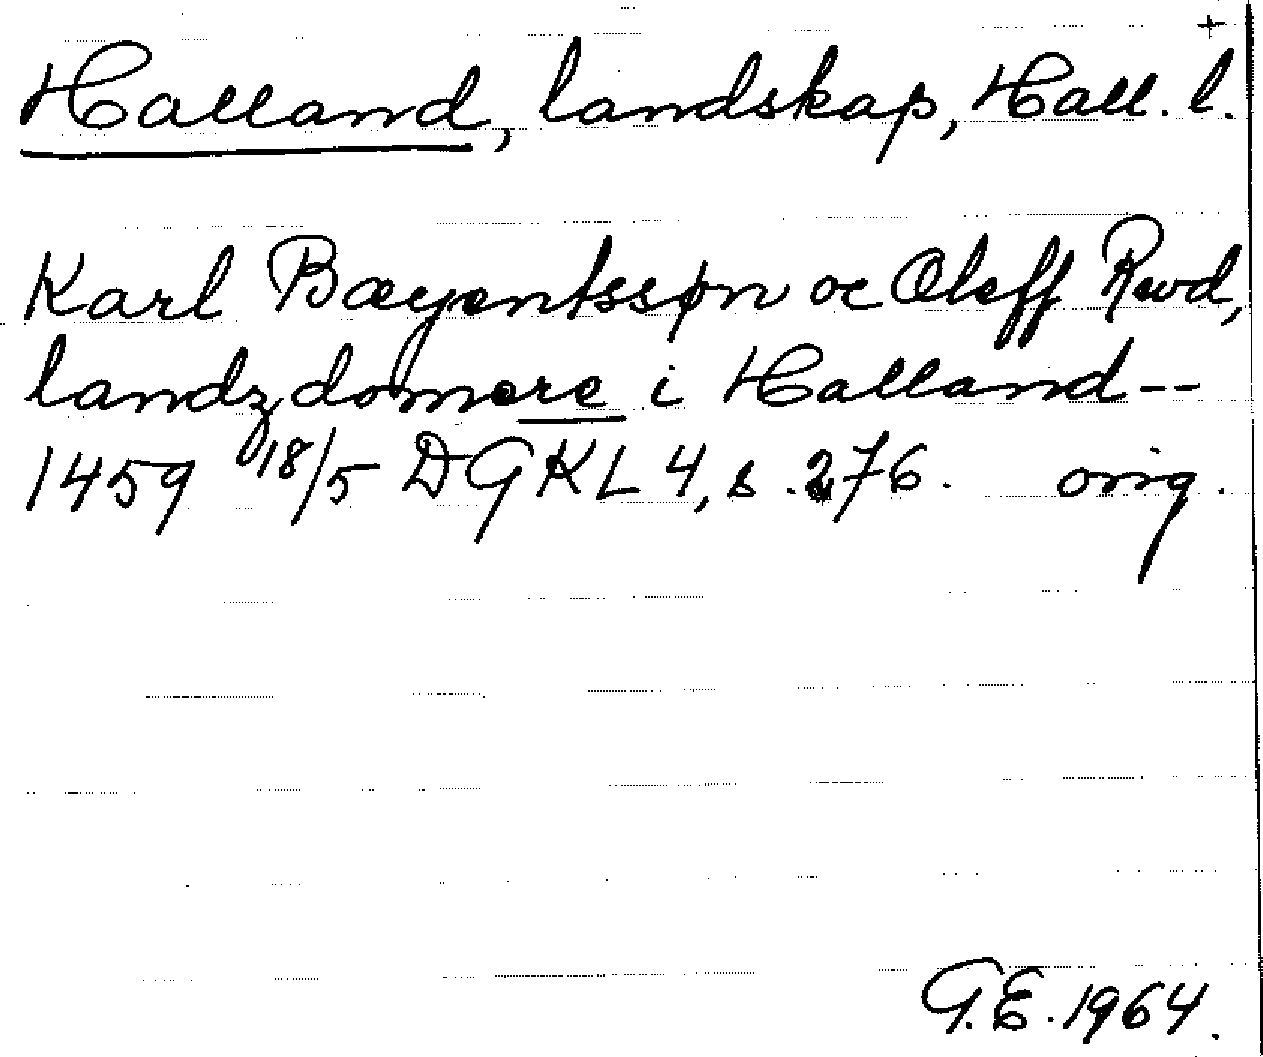 +
Halland, landskap, Hall. l.
Karl Bæyentssøn oc Oleff Rwd,
landzdomere i Halland--
1459 18/5 DGKL 4, s. 276. orig.
G.E. 1964.